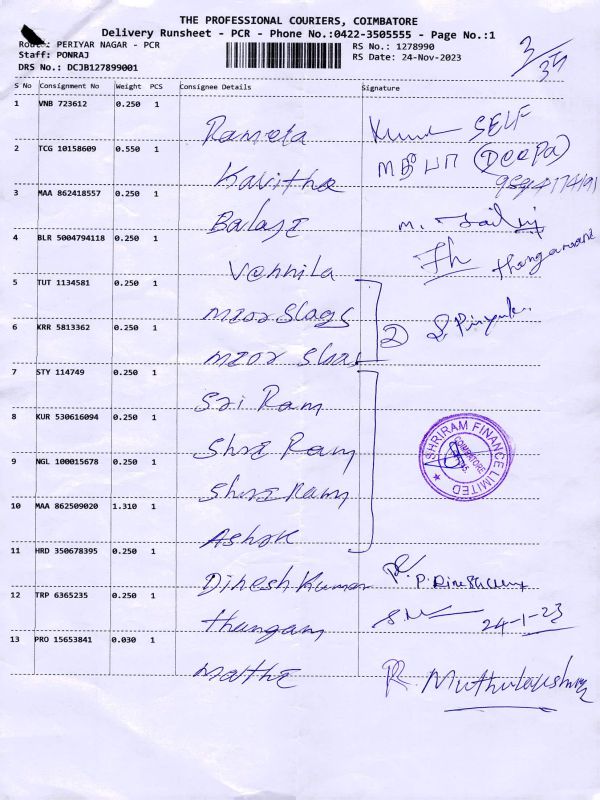 THE PROFESSIONAL COURIERS, COIMBATORE
Delivery Runsheet - PCR - Phone No.:0422-3505555 - Page No.:1
Route: PERIYAR NAGAR - PCR
RS No.: 1278990
Staff: PONRAJ
RS Date: 24-Nov-2023
DRS No.: DCJB127899001
3/39
S No Consignment No Weight PCS Consignee Details Signature
1 VNB 723612 0.250 1
Rameta SELF
2 TCG 10158609 0.550 1
Kavitha (Deepa)
3 MAA 862418557 0.250 1
Balaji M.
4 BLR 5004794118 0.250 1
Vennila
5 TUT 1134581 0.250 1
2
6 KRR 5813362 0.250 1
7 STY 114749 0.250 1
Sri Ram
8 KUR 530616094 0.250 1
Shre Ram
9 NGL 100015678 0.250 1
Shre Ram
SHRIRAM FINANCE LIMITED
COIMBATORE
10 MAA 862509020 1.310 1
Ashok
11 HRD 350678395 0.250 1
Dinesh Kumar
12 TRP 6365235 0.250 1
thangam 24-1-23
13 PRO 15653841 0.030 1
R. Muthulakshmi